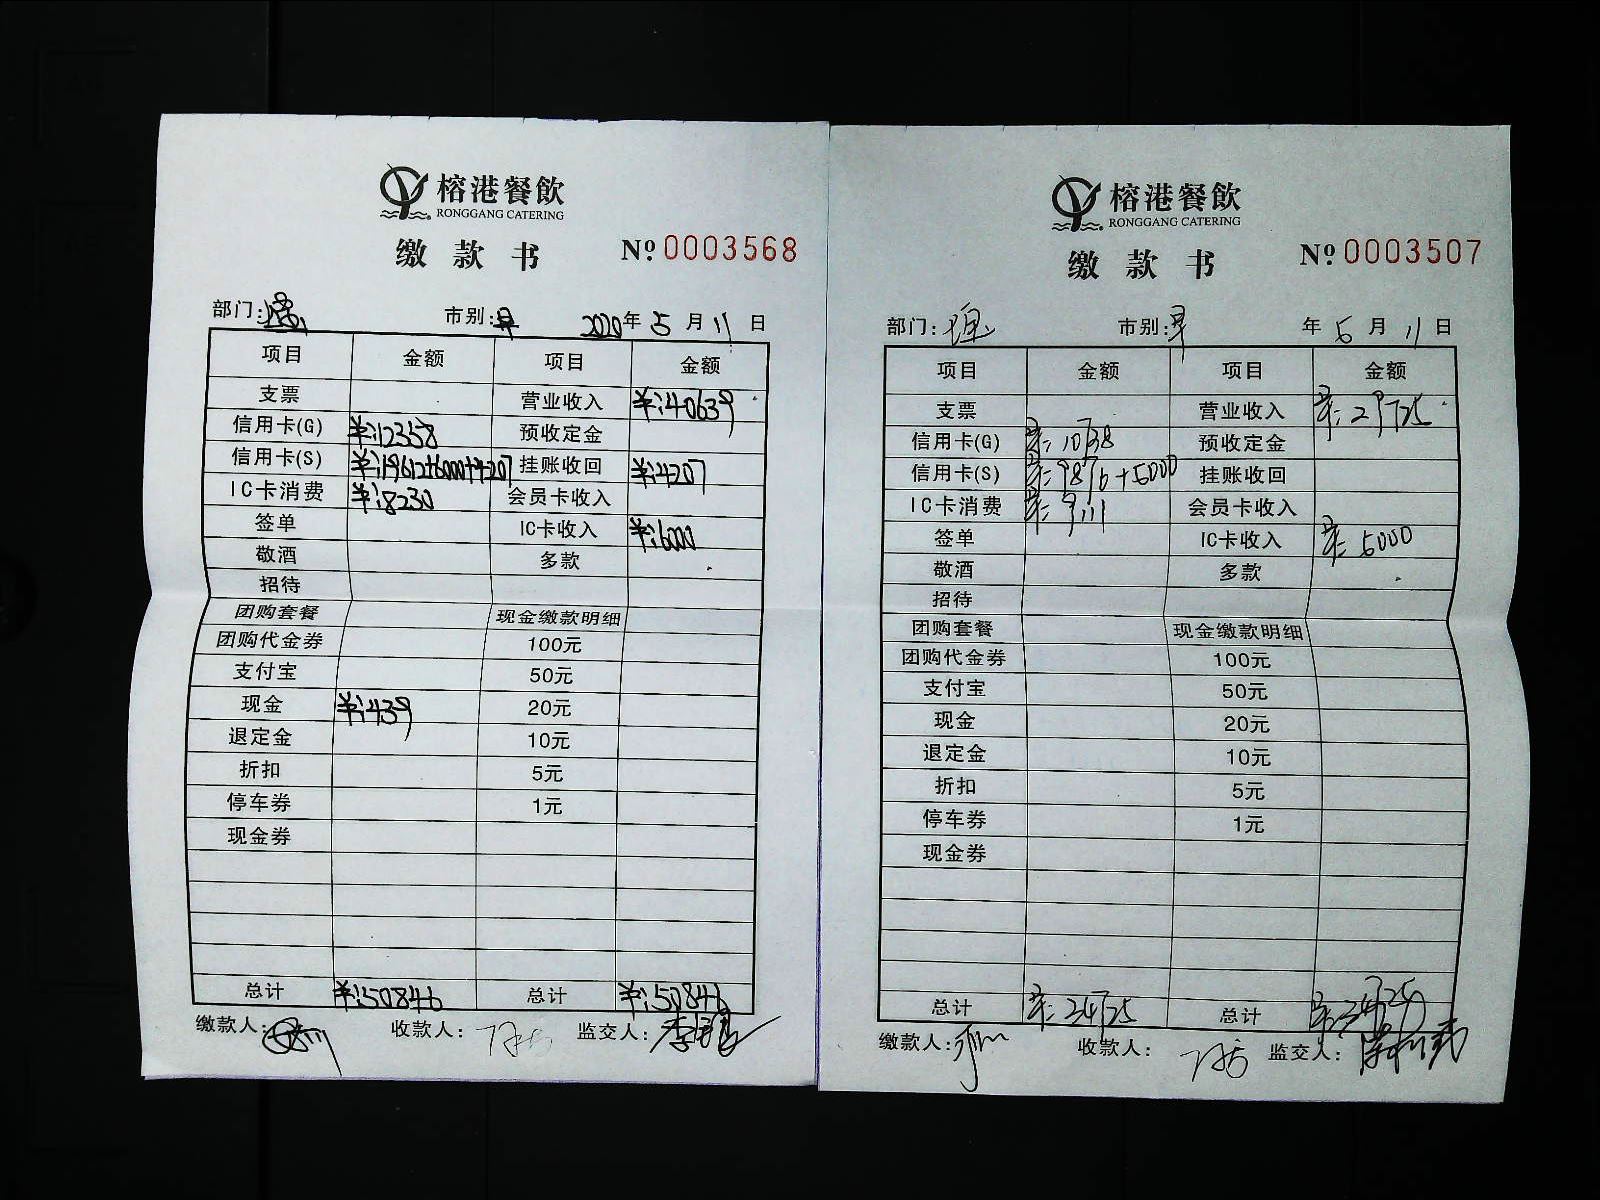 榕港餐飲
RONGGANG CATERING
缴款书 Nº 0003568
部门: 市别:早 2020年5月11日
项目 金额 项目 金额
支票 营业收入 ¥:40639
信用卡(G) ¥:12358 预收定金
信用卡(S) ¥:19612+6000+4207 挂账收回 ¥:4207
IC卡消费 ¥:8230 会员卡收入
签单 IC卡收入 ¥:6000
敬酒 多款
招待
团购套餐 现金缴款明细
团购代金券 100元
支付宝 50元
现金 ¥:439 20元
退定金 10元
折扣 5元
停车券 1元
现金券
总计 ¥:50846 总计 ¥:50846
缴款人: 收款人: 监交人:
榕港餐飲
RONGGANG CATERING
缴款书 Nº 0003507
部门: 市别:早 年5月11日
项目 金额 项目 金额
支票 营业收入 ¥:29725
信用卡(G) ¥:10738 预收定金
信用卡(S) ¥:9876+5000 挂账收回
IC卡消费 ¥:9111 会员卡收入
签单 IC卡收入 ¥:5000
敬酒 多款
招待
团购套餐 现金缴款明细
团购代金券 100元
支付宝 50元
现金 20元
退定金 10元
折扣 5元
停车券 1元
现金券
总计 ¥:34725 总计 ¥:34725
缴款人: 收款人: 监交人: